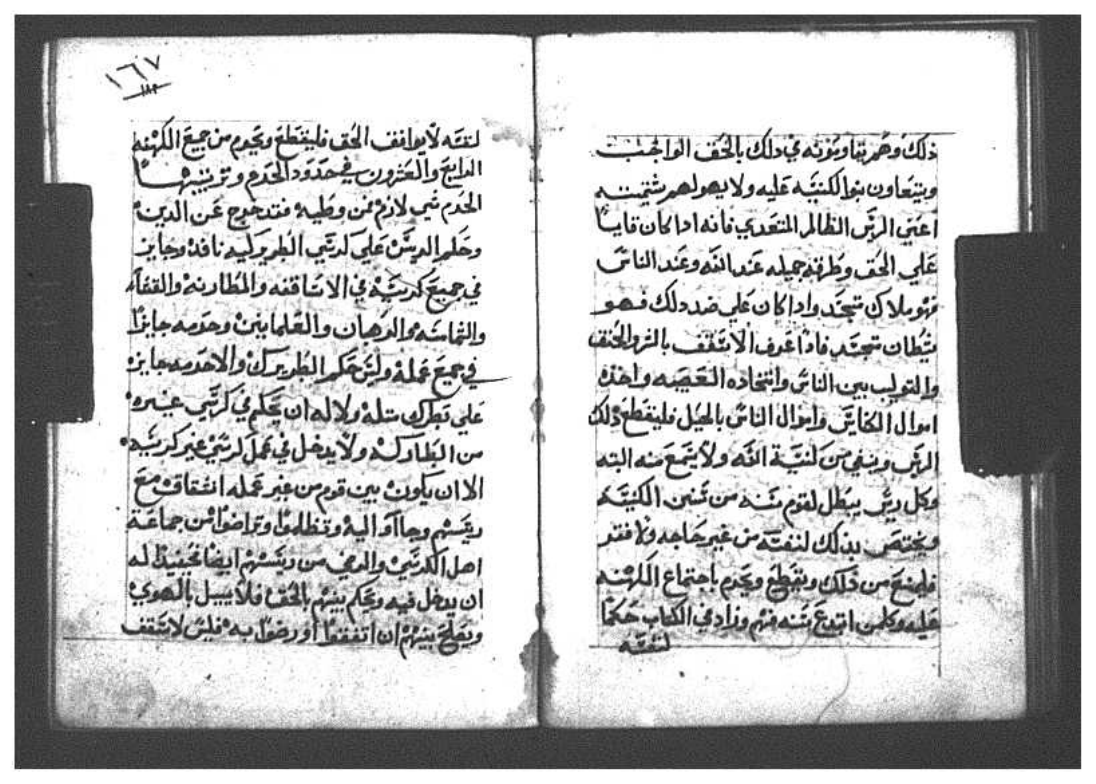 ذلك وهم يتاوبونه في دلك بالحق الواجب
ويتعاون بنوا الكنيسه عليه ولا يهولهم شتيمته
اعني الريس الظالم المتعدي فانه ادا كان قايما
علي الحق وطرقه جميله عند الله وعند الناس
فهو ملاك متجسد وادا كان علي ضد دلك فهو
شيطان متجسد فادا عرف الاسقف بالشر والحنق
والتوليب بين الناس واتخاده العصبه واخذه
اموال الكنايس واموال الناس بالحيل فليقطع ذلك
الريس وينفي من كنيسة الله ولا يسمع منه البته
وكل ريس يبطل لقوم سنه من سنن الكنيسه
ويختص بذلك لنفسه من غير حاجه ولا فقر
فليمنع من ذلك ويقطع ويحرم باجتماع الكهنه
عليه وكلمن ابتدع سنه منهم وزاد في الكتاب حكما
لنفسه
١٦٧
لنفسه لا يوافق الحق فليقطع ويحرم من جميع الكهنه
الرابع والعشرون في حدود الحرم وترتيبها
الحرم شي لازم فمن وطيه فقد خرج عن الدين
وحلم الريس علي كرسي البطريركيه نافد وجايز
في جميع كرسيه في الاساقفه والمطارنه والقفاء
والشماسه والرهبان والعلمانيين وحرمه جايزا
في جميع عمله وليس حكم البطريرك والاحرمه جايز
علي بطرك مثله ولا له ان يحكم في كرسي غيره
من البطاركه ولا يدخل في عمل كرسي غير كرسيه
الا ان يكون بين قوم من غير عمله انشقاق مع
ريسهم وجاآوا اليه وتظلموا وتراضوا من جماعة
اهل الكرسي والرضي من ريسهم ايضا فحينيد له
ان يدخل فيه ويحكم بينهم بالحق فلا يميل بالهوي
ويصلح بينهم ان اتفقوا او رضوا به فليس لاسقف